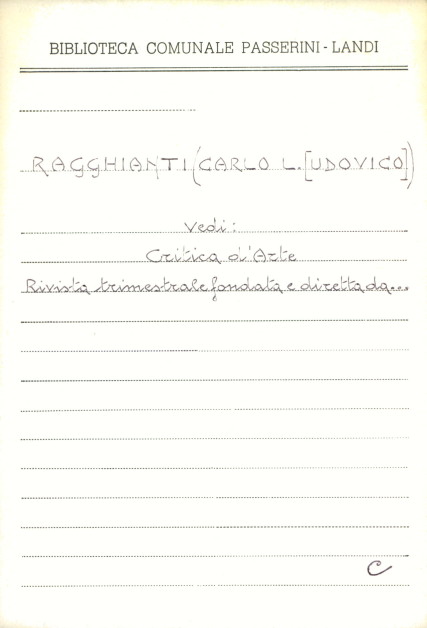 BIBLIOTECA COMUNALE PASSERINI-LANDI
RAGGHIANTI (CARLO L.[UDOVICO])
Vedi:
Critica d'Arte
Rivista trimestrale fondata e diretta da...
C